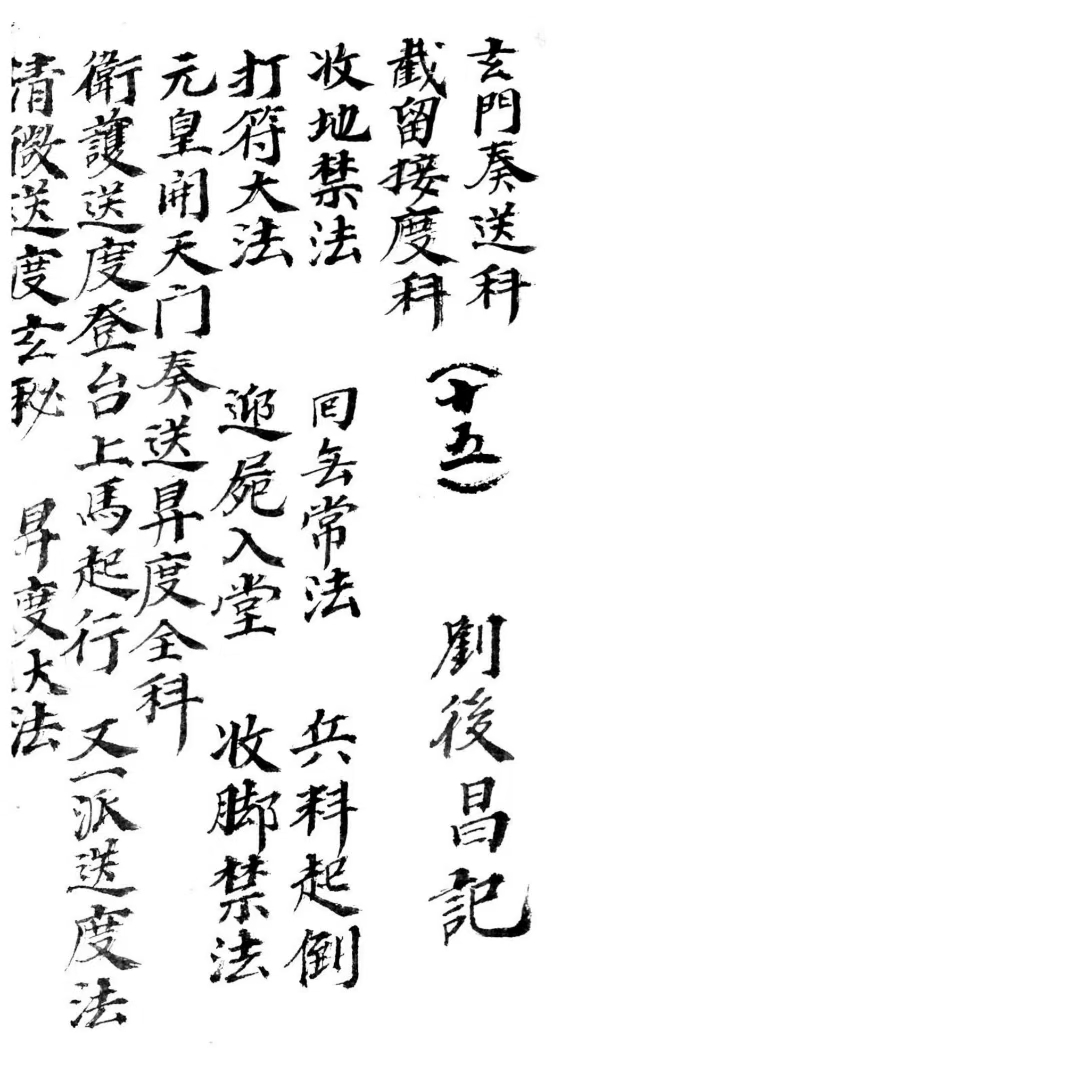 玄門奏送科
截留接度科 (十五) 劉後昌記
收地禁法 回无常法 兵料起倒
打符大法 迎屍入堂 收脚禁法
元皇開天门奏送昇度全科
衛護送度登台上馬起行 又一派送度法
清微送度玄秘 昇度大法